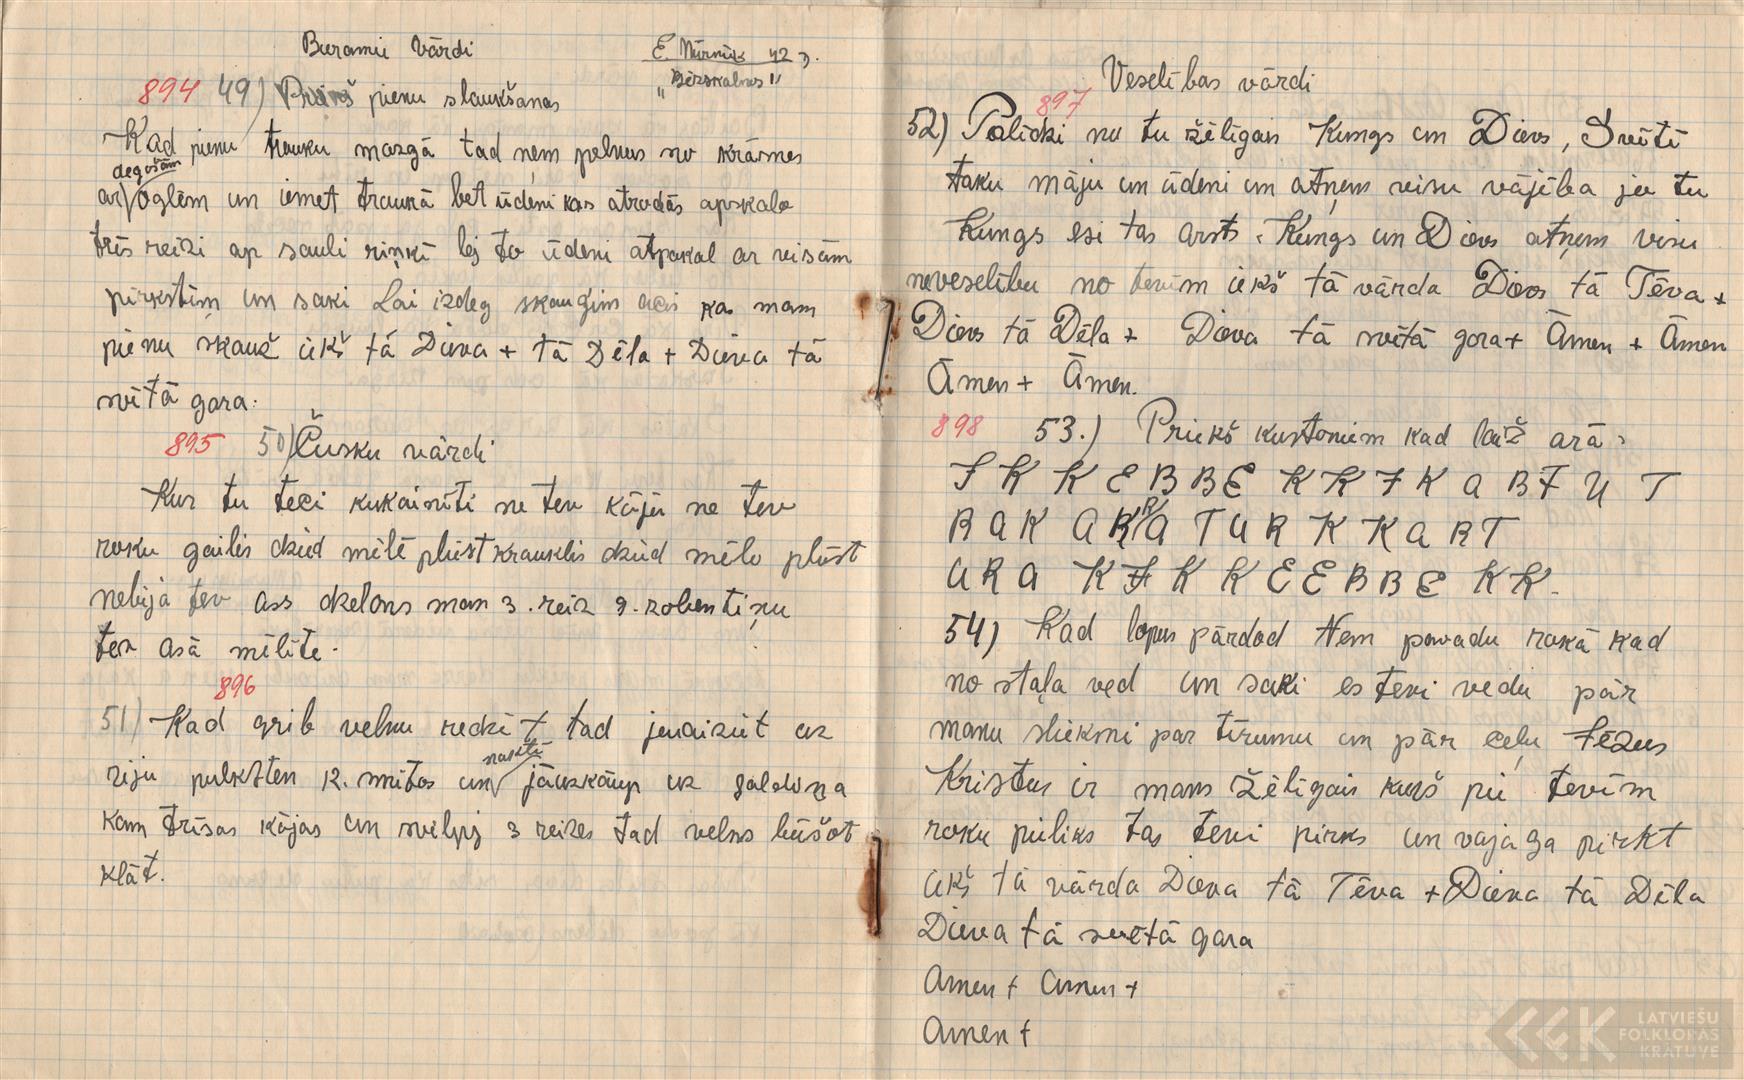 Buramie vārdi
E. Nīrnīk 42 g.
"Bērzkalnos"
894 49) Priekš pienu slaukšanas
Kad pienu trauku mazgā tad ņem pelnus no krāsnes
degošām
ar oglēm un iemet traukā bet ūdeni kas atrodās apskalo
trīs reizi ap sauli riņķī lej to ūdeni atpakal ar visām
pirkstim un saki Lai izdeg skauģim acis ka mam
pienu skauž iekš tā Dieva + tā Dēla + Dieva tā
svētā gara.
895 50) Čusku vārdi
Kur tu teci kukainīti ne tev kāju ne tev
roku gailis dzied mēlē plūst krauklis dzied mēlo plūst
nebija tev ass dzelons man 3. reiz 9. zobentiņu
tev asā mēlīte.
896
51) Kad grib velnu redzēt tad jenaiziet uz
riju pulksten 12. nnītos un jāuzkāup uz galdiņa
naktī
kam trīsas kājas un svilpij 3 reizes tad velns būšot
klāt.
Veselības vārdi
897
52) Palīdzi nu tu žēligais Kungs un Dievs, Svētī
taku māju un ūdeni un atņem visu vājība jo tu
Kungs esi tas arsts. Kungs un Dievs atņem visu
neveselību no tevim iekš tā vārda Dievs tā Tēva +
Dievs tā Dēla + Dieva tā svētā gora + Āmen + Āmen
Āmen + Āmen.
898 53.) Priekš kustoniem kad laiž arā.
F K K E B B E K K F K A B F U T
R A K A R K A T U R K K A R T
U R A K F K K E E B B E K K.
54) Kad lopus pārdod Ņem pavadu rokā kad
no staļa ved un saki es tevi vedu pār
manu slieksni par tīrumu un pār ceļu Jēzus
Kristus ir mans žēligais kurš pie tevim
roku pieliks tas tevi pirks un vajaga pirkt
iekš tā vārda Dieva tā Tēva + Dieva tā Dēla
Dieva tā svētā gara
Amen + Amen +
Amen +
LATVIEŠU
FOLKLORAS
KRĀTUVE